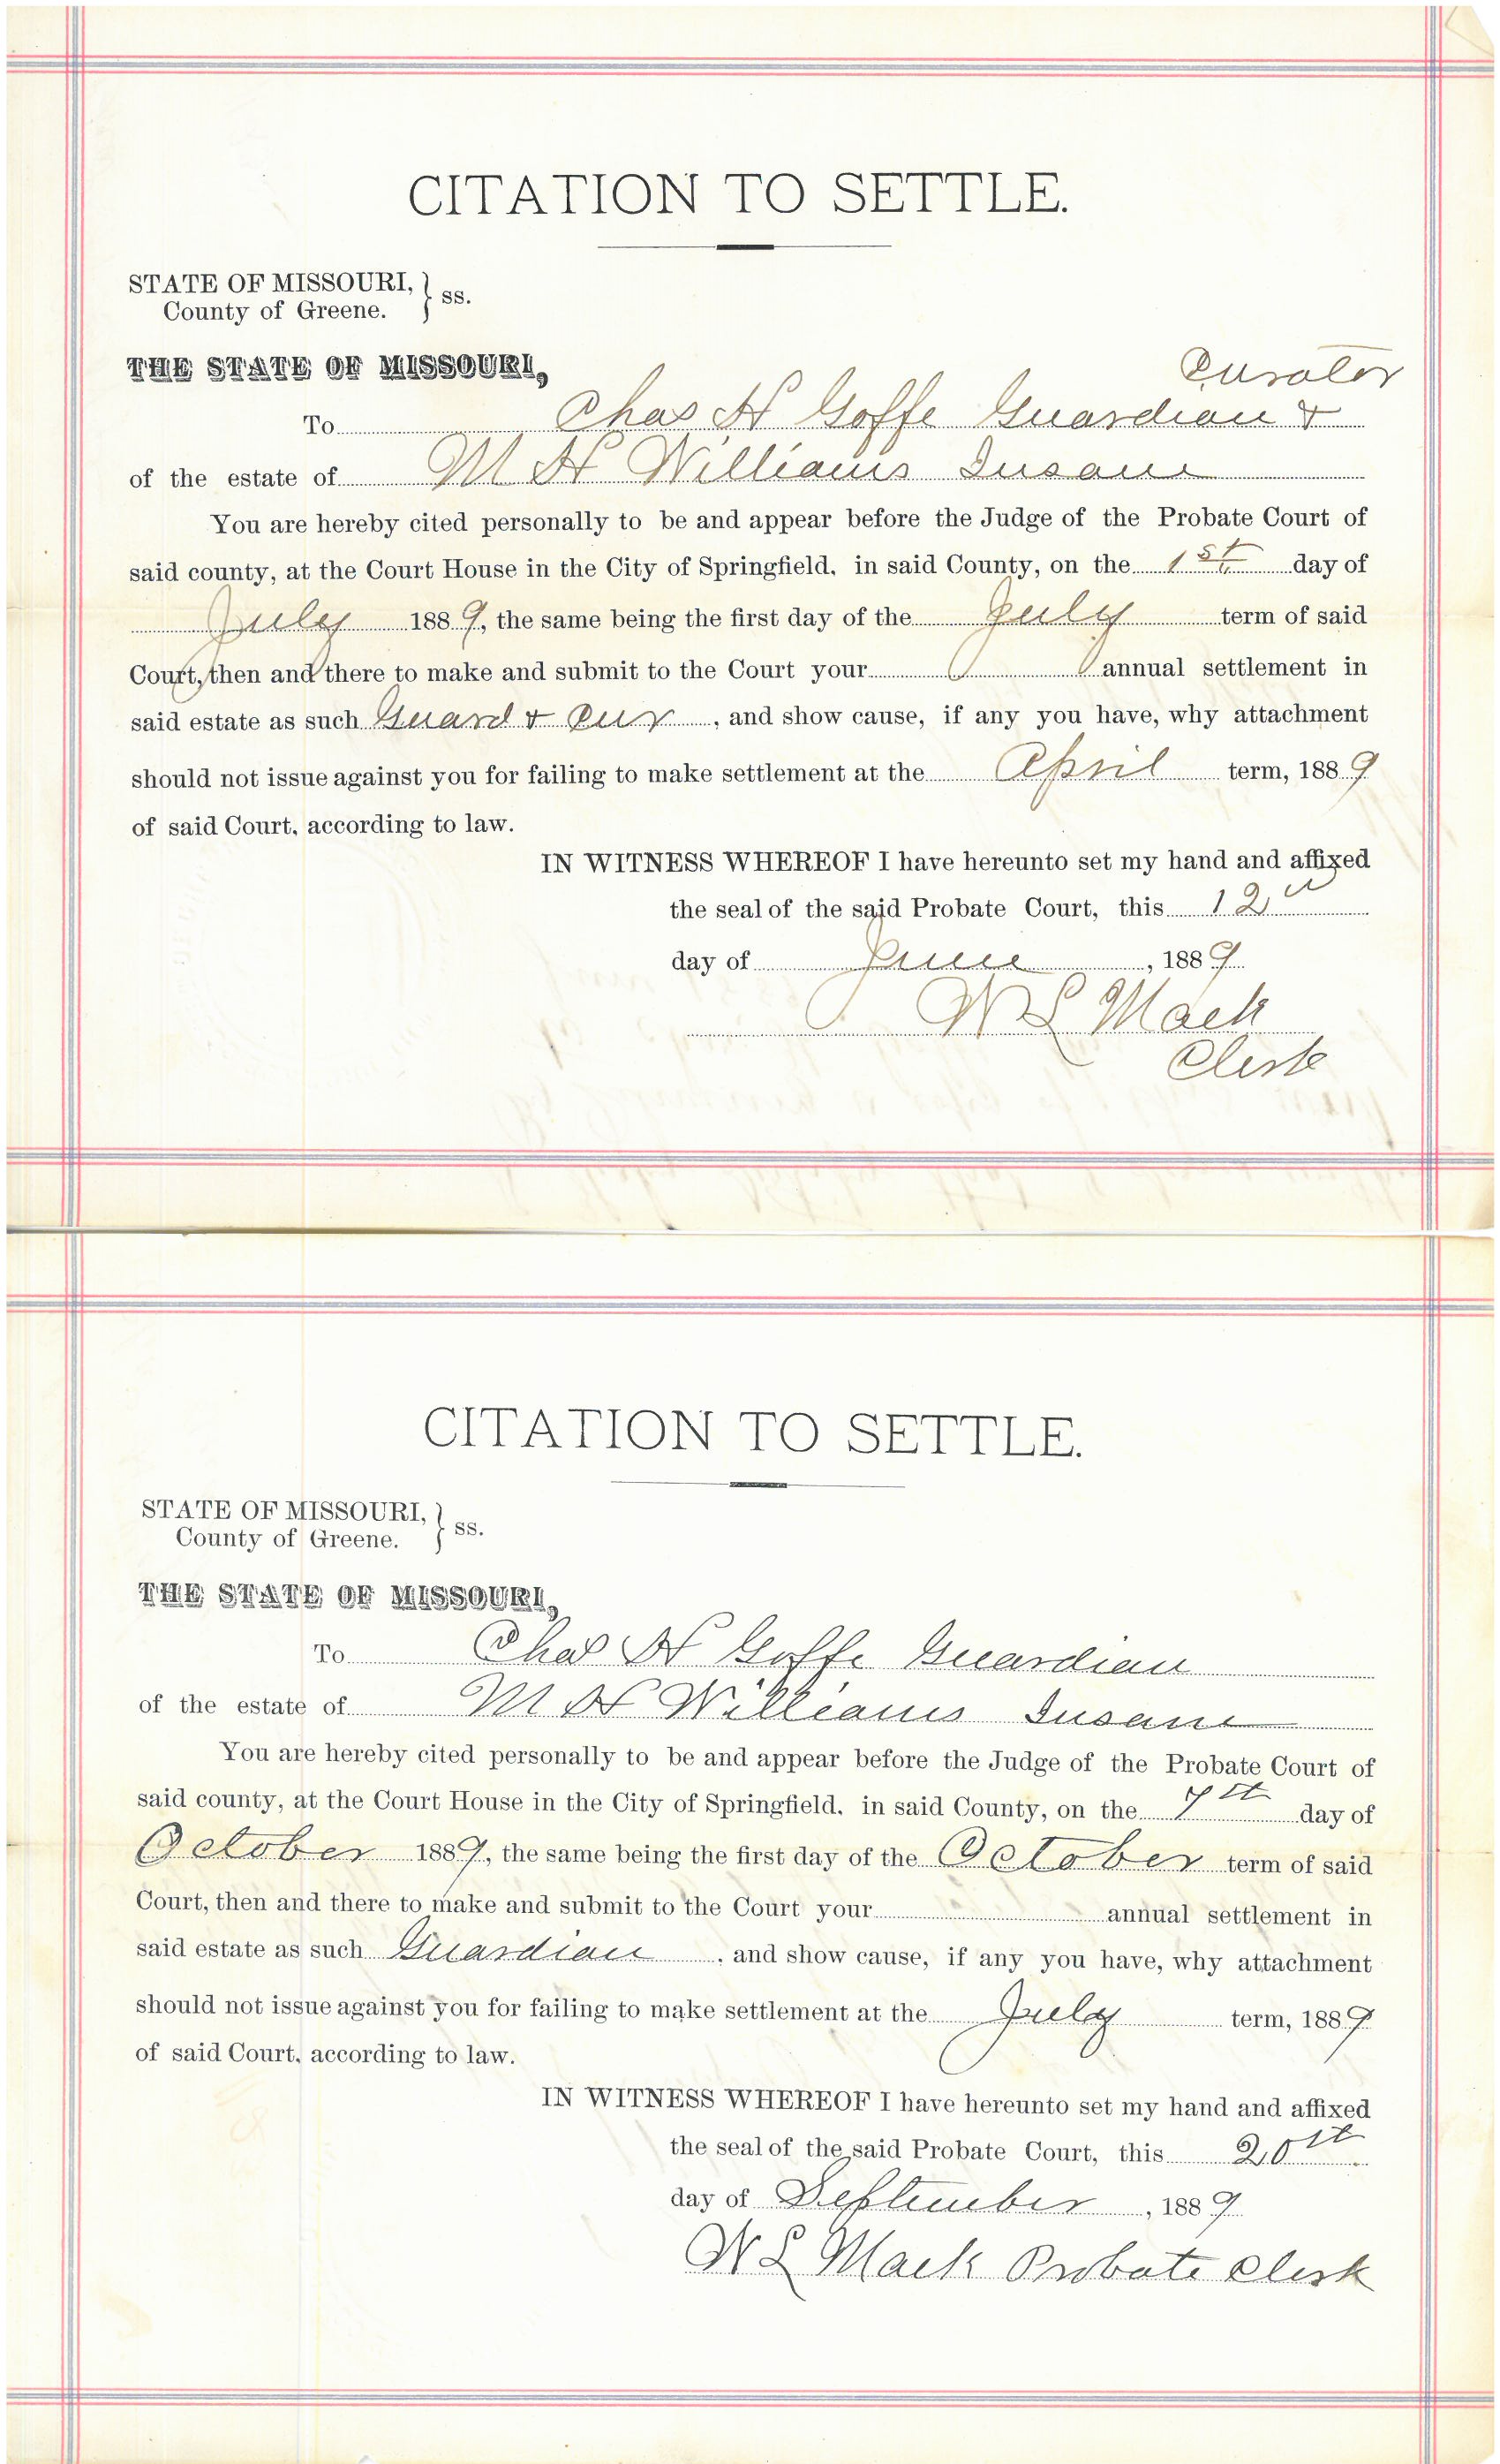 CITATION TO SETTLE.
STATE OF MISSOURI, } ss.
County of Greene.
THE STATE OF MISSOURI,
Curator
To Chas H Goffe Guardian &
of the estate of M H Williams Insane
You are hereby cited personally to be and appear before the Judge of the Probate Court of
said county, at the Court House in the City of Springfield, in said County, on the 1st day of
July 1889, the same being the first day of the July term of said
Court, then and there to make and submit to the Court your annual settlement in
said estate as such Guard & Cur , and show cause, if any you have, why attachment
should not issue against you for failing to make settlement at the April term, 1889
of said Court, according to law.
IN WITNESS WHEREOF I have hereunto set my hand and affixed
the seal of the said Probate Court, this 12th
day of June , 1889
W L Mack
Clerk
CITATION TO SETTLE.
STATE OF MISSOURI, } ss.
County of Greene.
THE STATE OF MISSOURI,
To Chas H Goffe Guardian
of the estate of M H Williams Insane
You are hereby cited personally to be and appear before the Judge of the Probate Court of
said county, at the Court House in the City of Springfield, in said County, on the 7th day of
October 1889, the same being the first day of the October term of said
Court, then and there to make and submit to the Court your annual settlement in
said estate as such Guardian , and show cause, if any you have, why attachment
should not issue against you for failing to make settlement at the July term, 1889
of said Court, according to law.
IN WITNESS WHEREOF I have hereunto set my hand and affixed
the seal of the said Probate Court, this 20th
day of September , 1889
W L Mack Probate Clerk